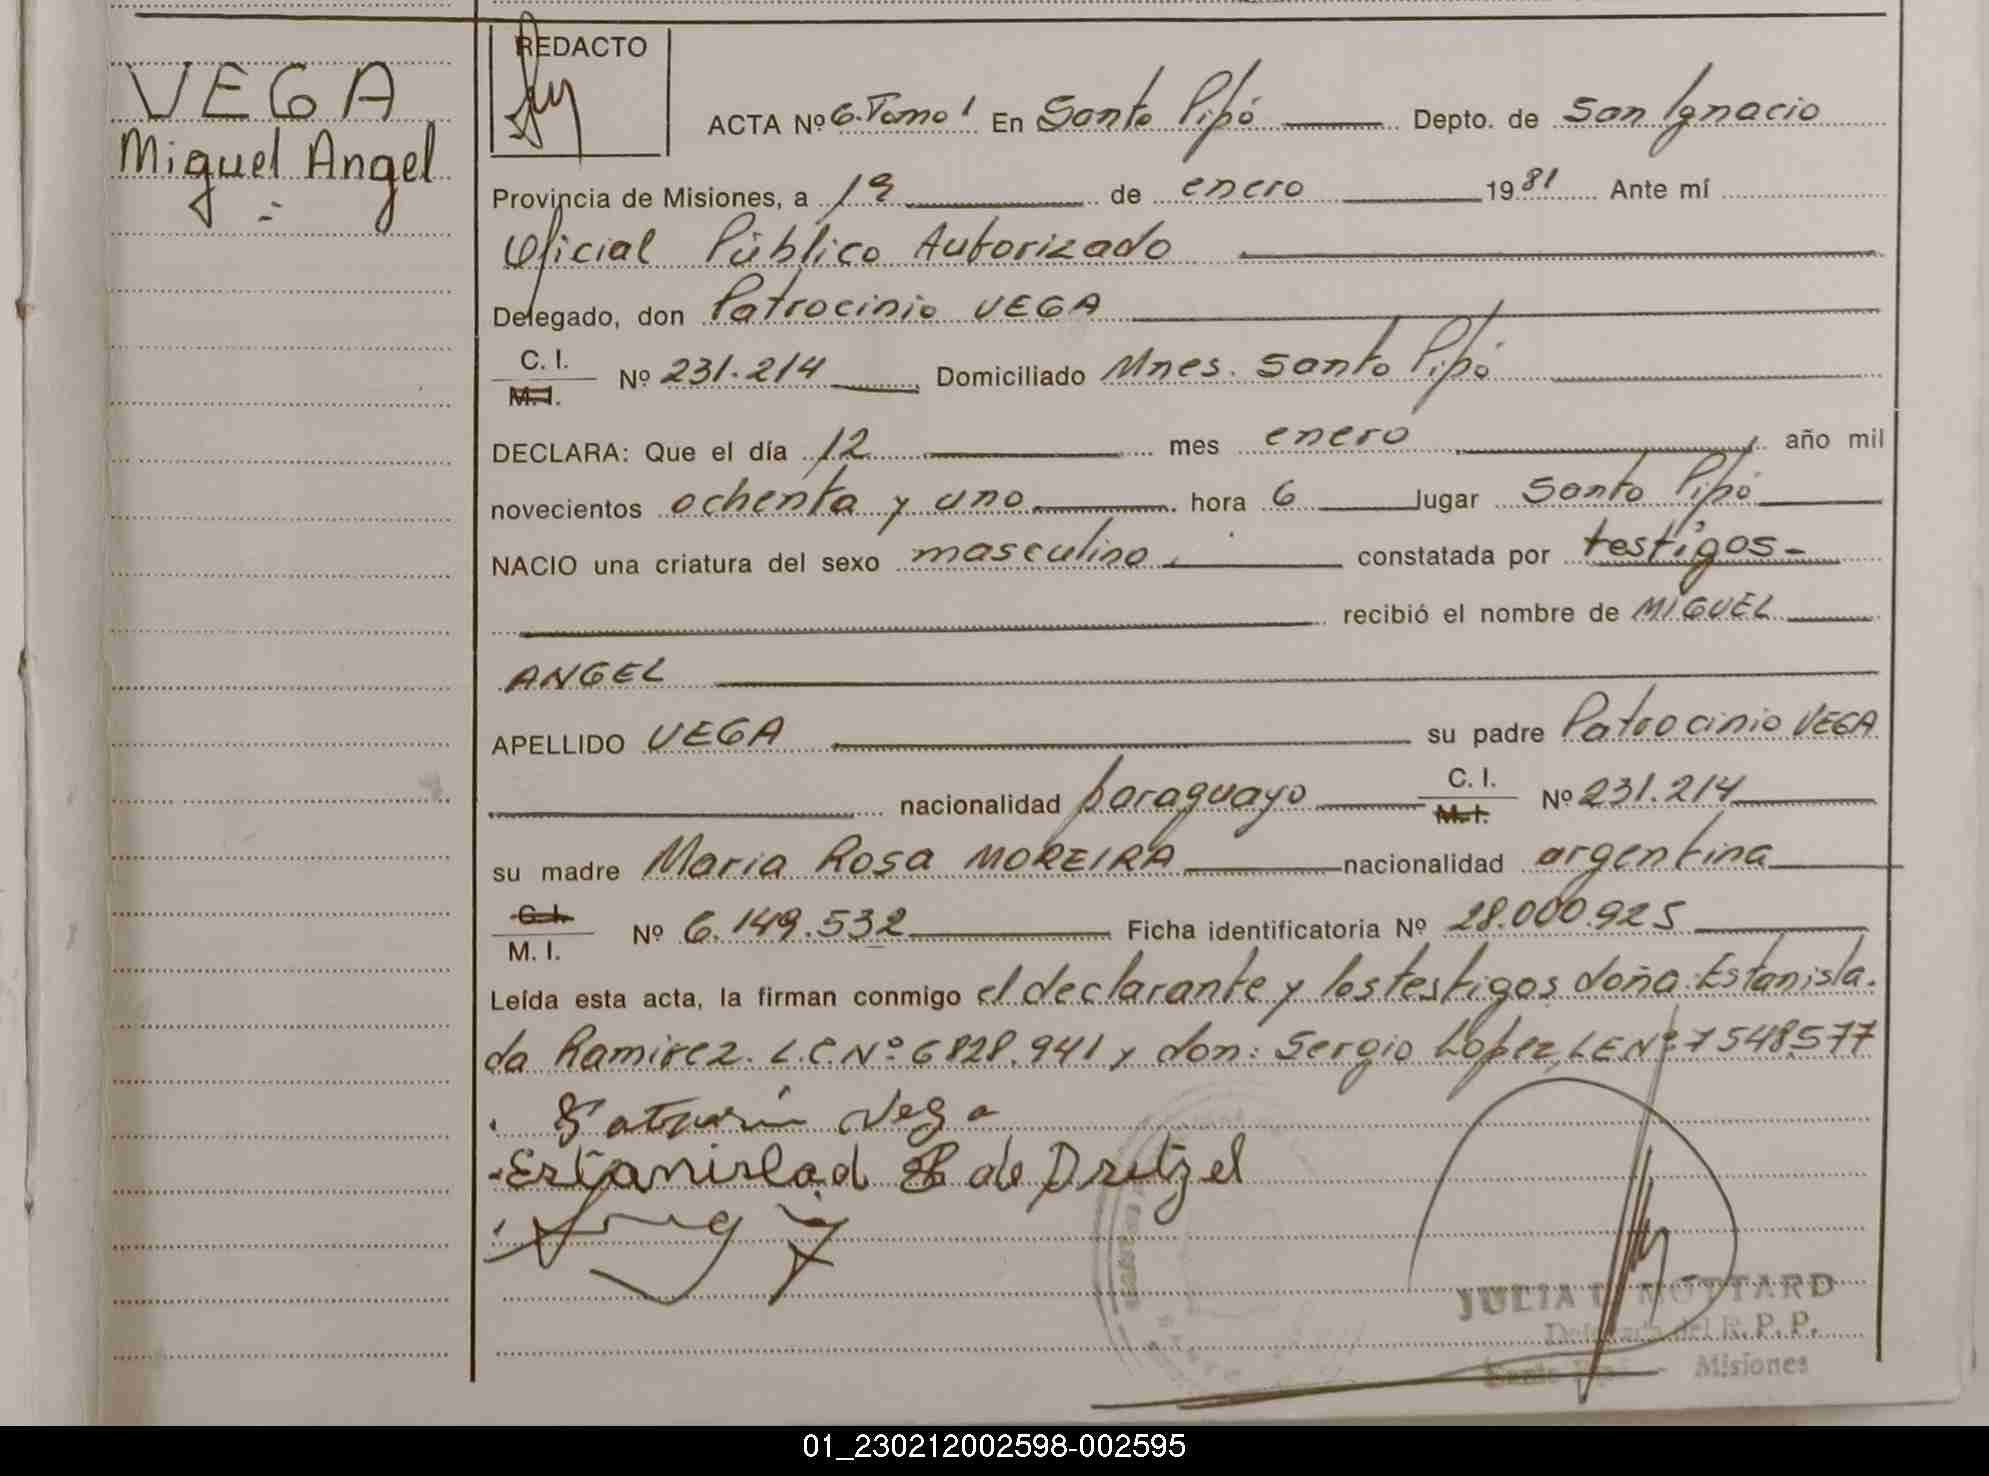 VEGA
Miguel Angel
REDACTO
ACTA Nº 6. Tomo 1 En Santo Pipó Depto. de San Ignacio
Provincia de Misiones, a 19 de enero 1981 Ante mí
Oficial Público Autorizado
Delegado, don Patrocinio VEGA
C. I.
M. I. Nº 231.214 Domiciliado Mnes. Santo Pipó
DECLARA: Que el día 12 mes enero año mil
novecientos ochenta y uno hora 6 lugar Santo Pipó
NACIO una criatura del sexo masculino constatada por testigos-
recibió el nombre de MIGUEL
ANGEL
APELLIDO VEGA su padre Patrocinio VEGA
nacionalidad paraguayo C. I. M. I. Nº 231.214
su madre Maria Rosa MOREIRA nacionalidad argentina
C. I.
M. I. Nº 6.149.532 Ficha identificatoria Nº 28.000.925
Leída esta acta, la firman conmigo el declarante y los testigos doña: Estanisla-
da Ramirez. L.C.Nº 6828.941 y don: Sergio Lopez, LE Nº 7548.577
Vega
Estanislad de Dretzel
JULIA MOTTARD
Delegada del R. P. P.
Santo Pipó - Misiones
01_230212002598-002595